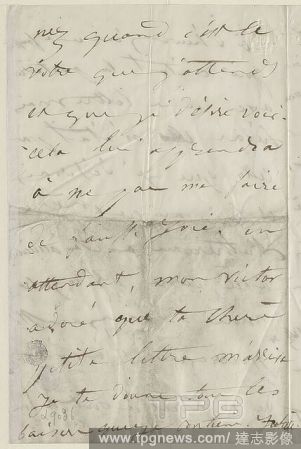 nez quand c'est le
vôtre que j'attends
et que je désire voir.
cela lui apprendra
à ne pas me faire
de
attendant, mon victor
adoré que ta chère
petite lettre
Je te donne tous les
baisers que
29086
TPG
www.tpgnews.com/達志影像